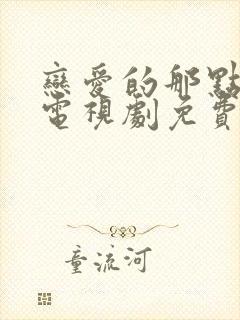 戀愛的那點
電視劇免費
童流河